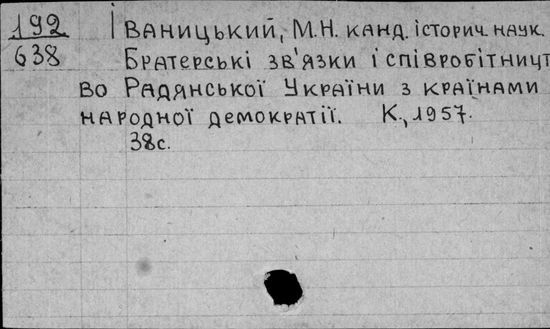 192
638
Іваницький, М.Н. канд. історич. наук.
Братерські зв'язки і співробітницт
во Радянської України з країнами
народної демократії. К., 1957.
38с.